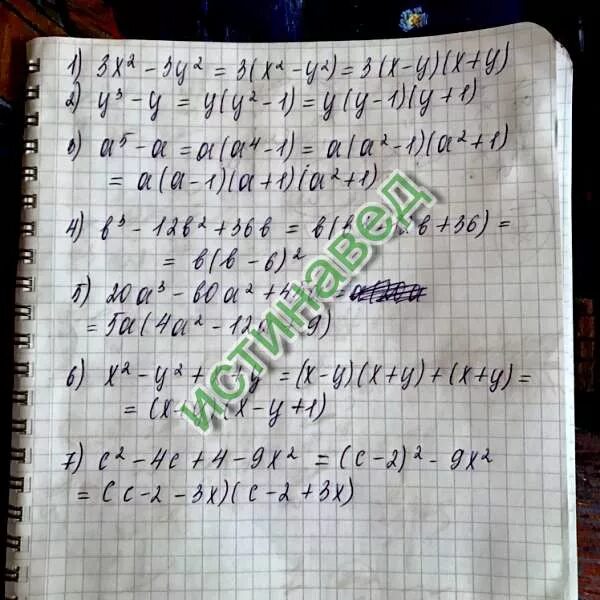 1) 3x² - 3y² = 3(x² - y²) = 3(x-y)(x+y)
2) y³ - y = y(y² - 1) = y(y-1)(y+1)
3) a⁵ - a = a(a⁴ - 1) = a(a² - 1)(a² + 1)
= a(a-1)(a+1)(a²+1)
4) в³ - 12в² + 36в = в( в + 36) =
= в(в - 6)²
5) 20a³ - 60a² + 4 =
= 5a(4a² - 12 9)
6) x² - y² + y = (x-y)(x+y) + (x+y) =
= (x (x-y+1)
7) c² - 4c + 4 - 9x² = (c-2)² - 9x²
= (c-2-3x)(c-2+3x)
истинавед